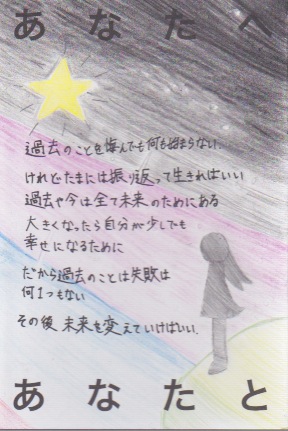 あなたへ
過去のことを悔んでも何も始まらない.
けれどたまには振り返って生きればいい
過去や今は全て未来のためにある
大きくなったら自分が少しでも
幸せになるために
だから過去のことは失敗は
何1つもない
その後 未来も変えていけばいい.
あなたと